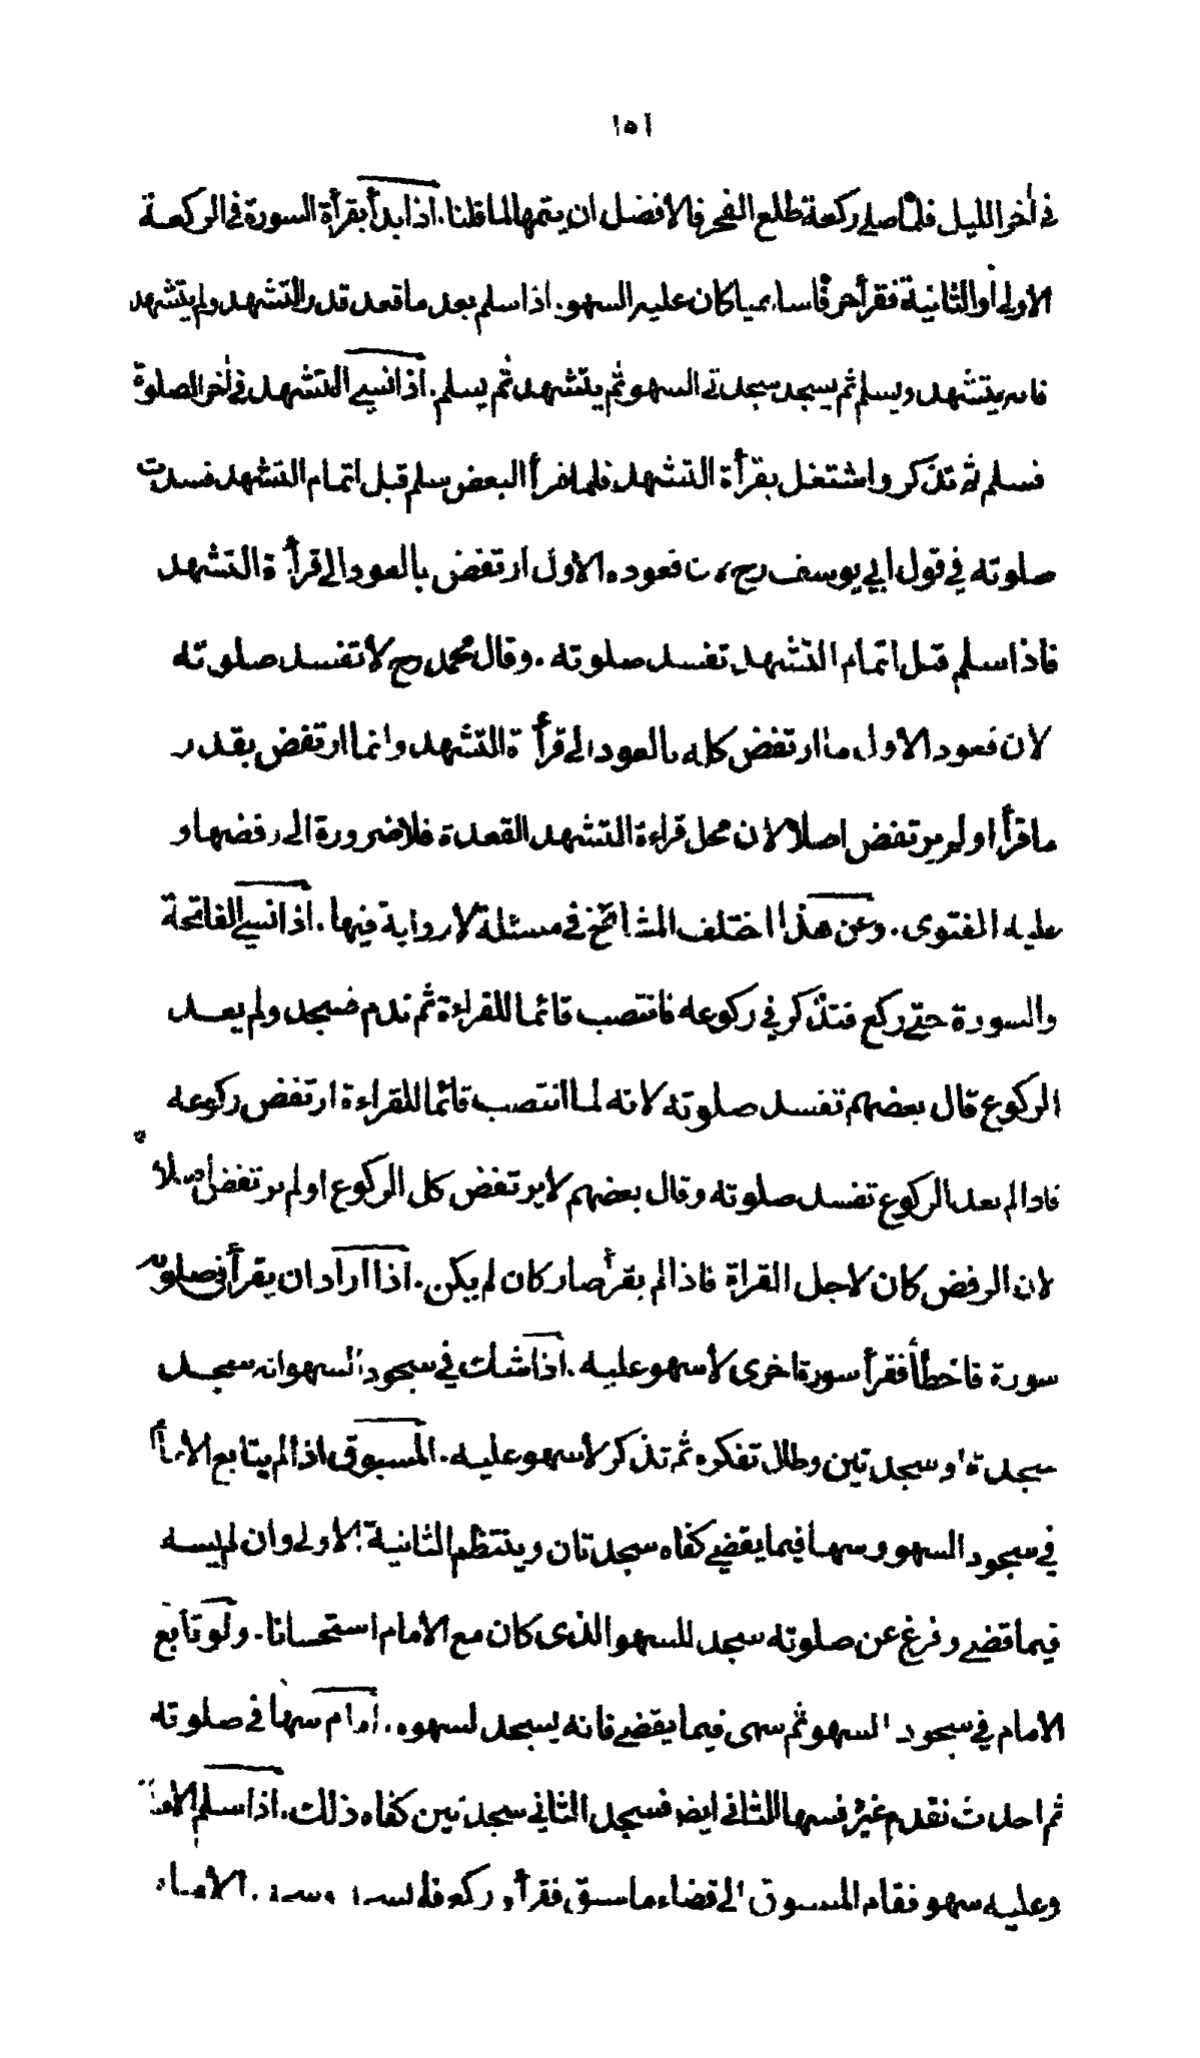 ١٥١
فى أخر الليل فلما صلى ركعة طلع الفجر فالافضل ان يتمها لما قلنا. اذا بدأ بقرأة السورة فى الركعة
الاولى أو الثانية فقرأ حرفا ساهيا كان عليه السهو. اذا سلم بعد ما قعد قدر التشهد ولم يتشهد
فانه يتشهد ويسلم ثم يسجد سجدتى السهو ثم يتشهد ثم يسلم. اذا نسى التشهد فى أخر الصلوة
فسلم ثم تذكر واشتغل بقرأة التشهد فلما قرأ البعض سلم قبل اتمام التشهد فسدت
صلوته فى قول ابى يوسف رح لان قعوده الاول ارتفض بالعود الى قرأة التشهد
فاذا سلم قبل اتمام التشهد تفسد صلوته. وقال محمد رح لا تفسد صلوته
لان قعود الاول ما ارتفض كله بالعود الى قرأة التشهد وانما ارتفض بقدر
ما قرأ او لم يرتفض اصلا لان محل قراءة التشهد القعدة فلا ضرورة الى رفضها و
عليه الفتوى. وعن هذا اختلف المشائخ فى مسئلة لا رواية فيها. اذا نسى الفاتحة
والسورة حتى ركع فتذكر فى ركوعه فانتصب قائما للقراءة ثم ندم فسجد ولم يعد
الركوع قال بعضهم تفسد صلوته لانه لما انتصب قائما للقراءة ارتفض ركوعه
فاذا لم يعد الركوع تفسد صلوته وقال بعضهم لا يرتفض كل الركوع او لم يرتفض اصلا
لان الرفض كان لاجل القراة فاذا لم يقرأ صار كان لم يكن. اذا اراد ان يقرأ فى صلوته
سورة فاخطأ فقرأ سورة اخرى لا سهو عليه. اذا شك فى سجود السهو انه سجد
سجدة او سجدتين وطال تفكره ثم تذكر لا سهو عليه. المسبوق اذا لم يتابع الامام
فى سجود السهو وسها فيما يقضى كفاه سجدتان وينتظم الثانية الاولى وان لم يسه
فيما قضى وفرغ عن صلوته سجد للسهو الذى كان مع الامام استحسانا. ولو تابع
الامام فى سجود السهو ثم سهى فيما يقضى فانه يسجد لسهوه. امام سها فى صلوته
ثم احدث نقدم غيره فسها الثانى ايضا فسجد الثانى سجدتين كفاه ذلك. اذا سلم الامام
وعليه سهو فقام المسبوق الى قضاء ما سبق فقرأ و ركع